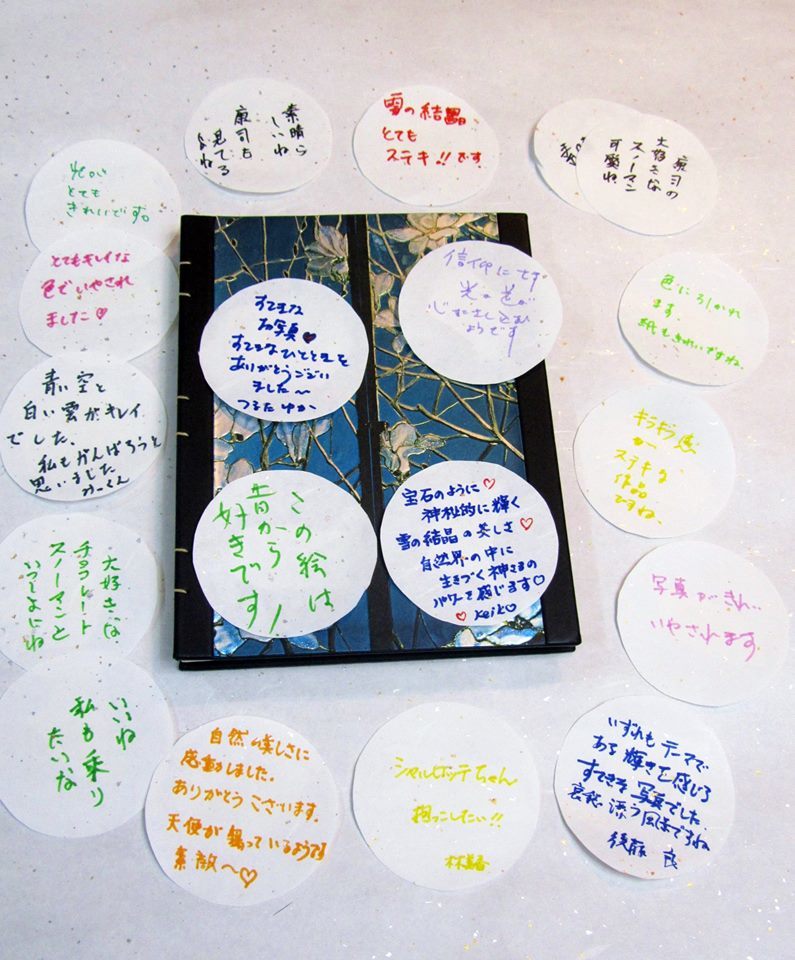 素晴ら
しいね
康司も
見てる
よね
雪の結晶
とても
ステキ!!です。
康司の
大好きな
スノーマン
可愛いね
光が
とても
きれいです。
とてもキレイな
色でいやされ
ました♡
すてきな
お写真♥
すてきなひとときを
ありがとうござい
ました〜
つるた ゆか
信仰に
光の
心にさし込む
ようです
色にひかれ
ます。
紙もきれいですね。
青い空と
白い雲がキレイ
でした。
私もがんばろうと
思いました
みっくん
キラキラ感
が
ステキな
作品
ですね。
この絵は
昔から
好きです!
宝石のように♡
神秘的に輝く
雪の結晶の美しさ♡
自然界の中に
生きづく神さまの
パワーを感じます♡
♡ Keiko
大好きな
チョコレート
スノーマンと
いっしょにね
写真がきれい
いやされます
いいね
私も乗り
たいな
自然の美しさに
感動しました。
ありがとうございます。
天使が舞っているようです
素敵〜♡
シャルロッテちゃん
抱っこしたい!!
いずれもテーマで
ある輝きを感じる
すてきな写真でした。
後藤 良